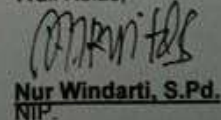 Nur Windarti, S.Pd.
NIP.